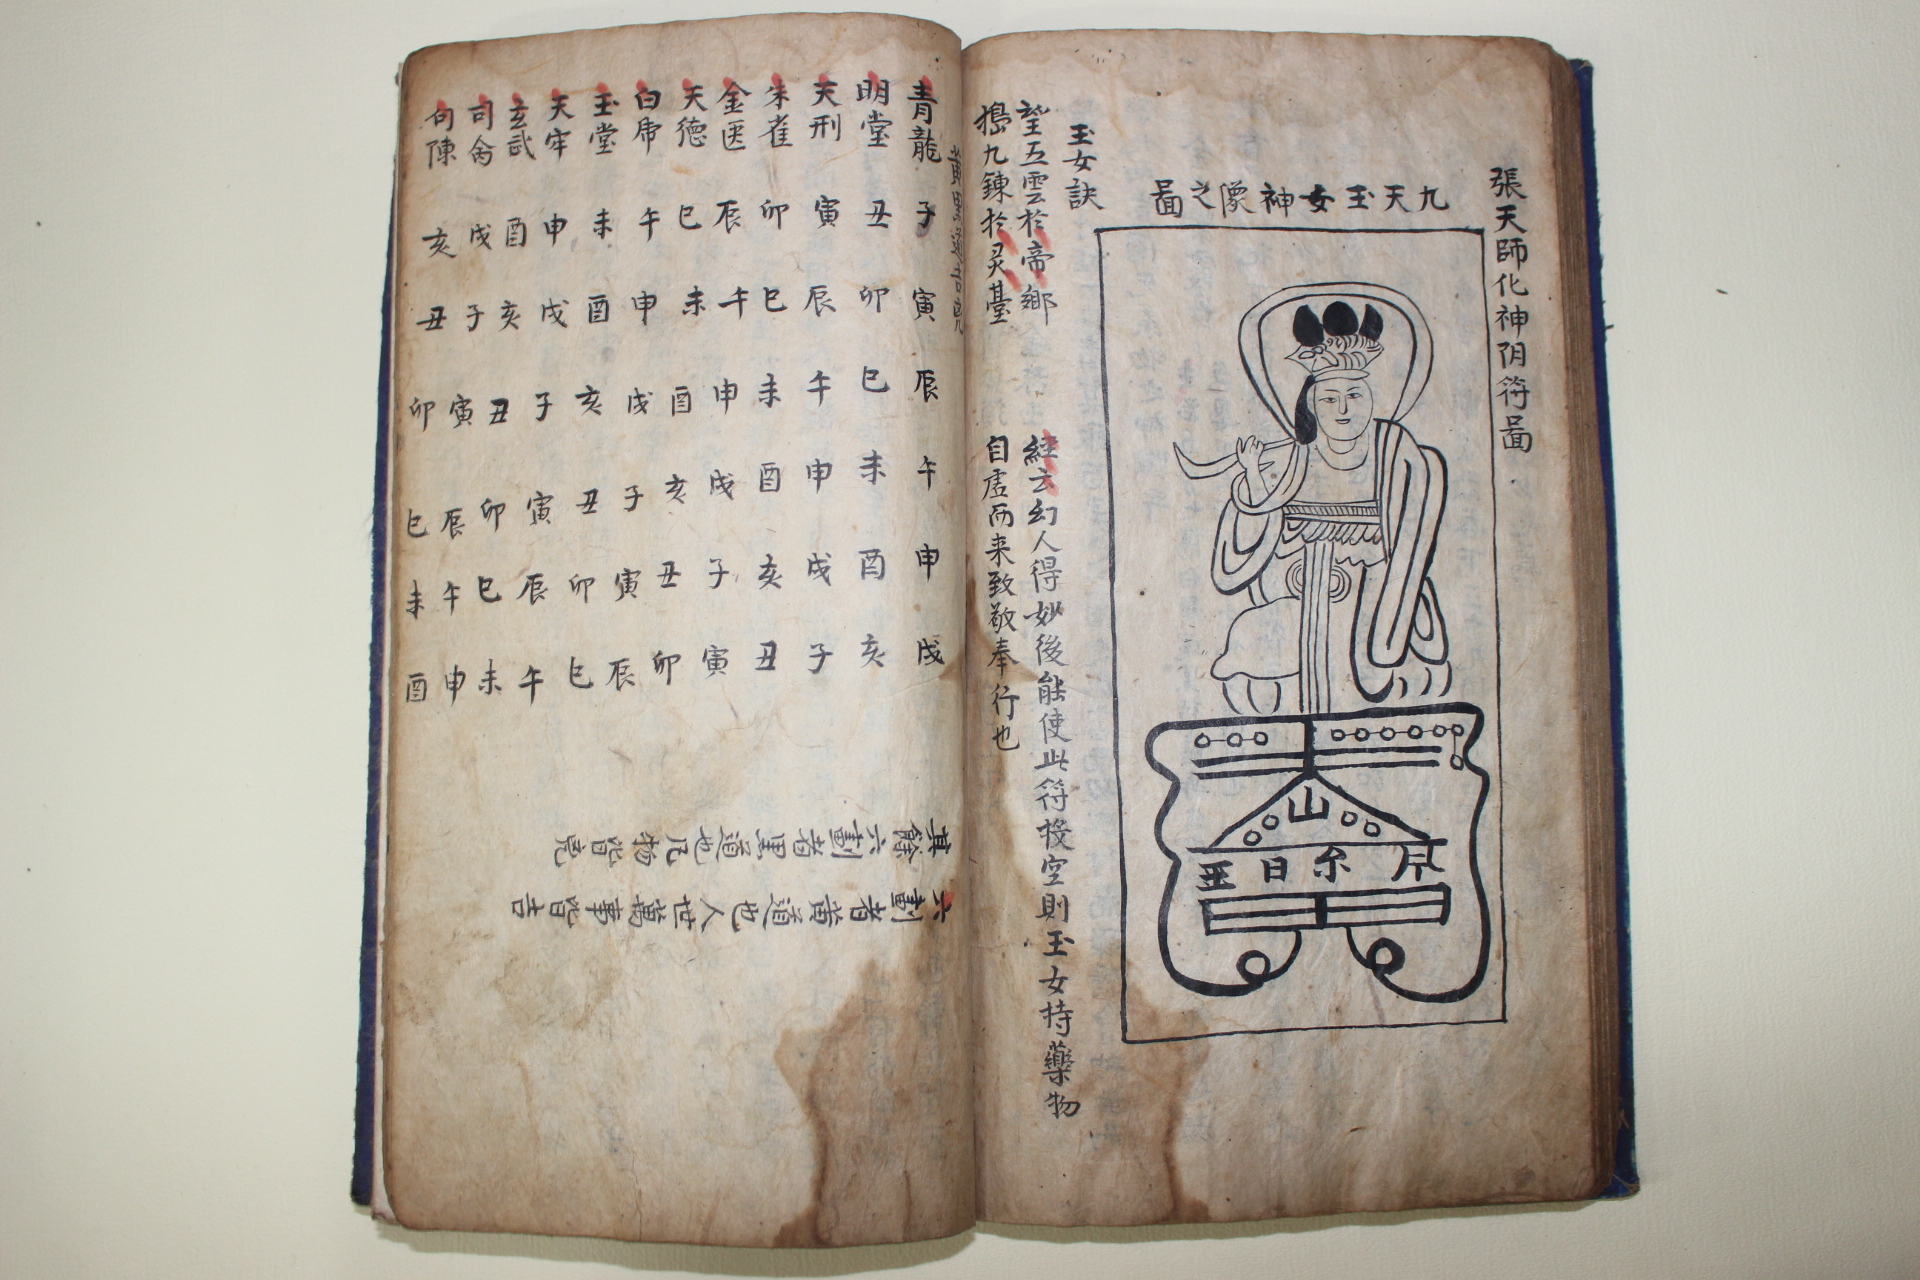 張天師化神阴符啚
九天玉女神像之啚
山
日
玉女訣
望五雲於帝鄉 經云幻人得妙後能使此符投空則玉女持藥物
搗九鍊於灵臺 自虛而来致敬奉行也
黃黑道吉凶
青龍 子 寅 辰 午 申 戌
明堂 丑 卯 巳 未 酉 亥
天刑 寅 辰 午 申 戌 子
朱雀 卯 巳 未 酉 亥 丑
金匱 辰 午 申 戌 子 寅
天德 巳 未 酉 亥 丑 卯
白虎 午 申 戌 子 寅 辰
玉堂 未 酉 亥 丑 卯 巳
天牢 申 戌 子 寅 辰 午
玄武 酉 亥 丑 卯 巳 未
司命 戌 子 寅 辰 午 申
句陳 亥 丑 卯 巳 未 酉
六劃者黃道也人世萬事皆吉
其餘六劃者黑道也凡物皆兇